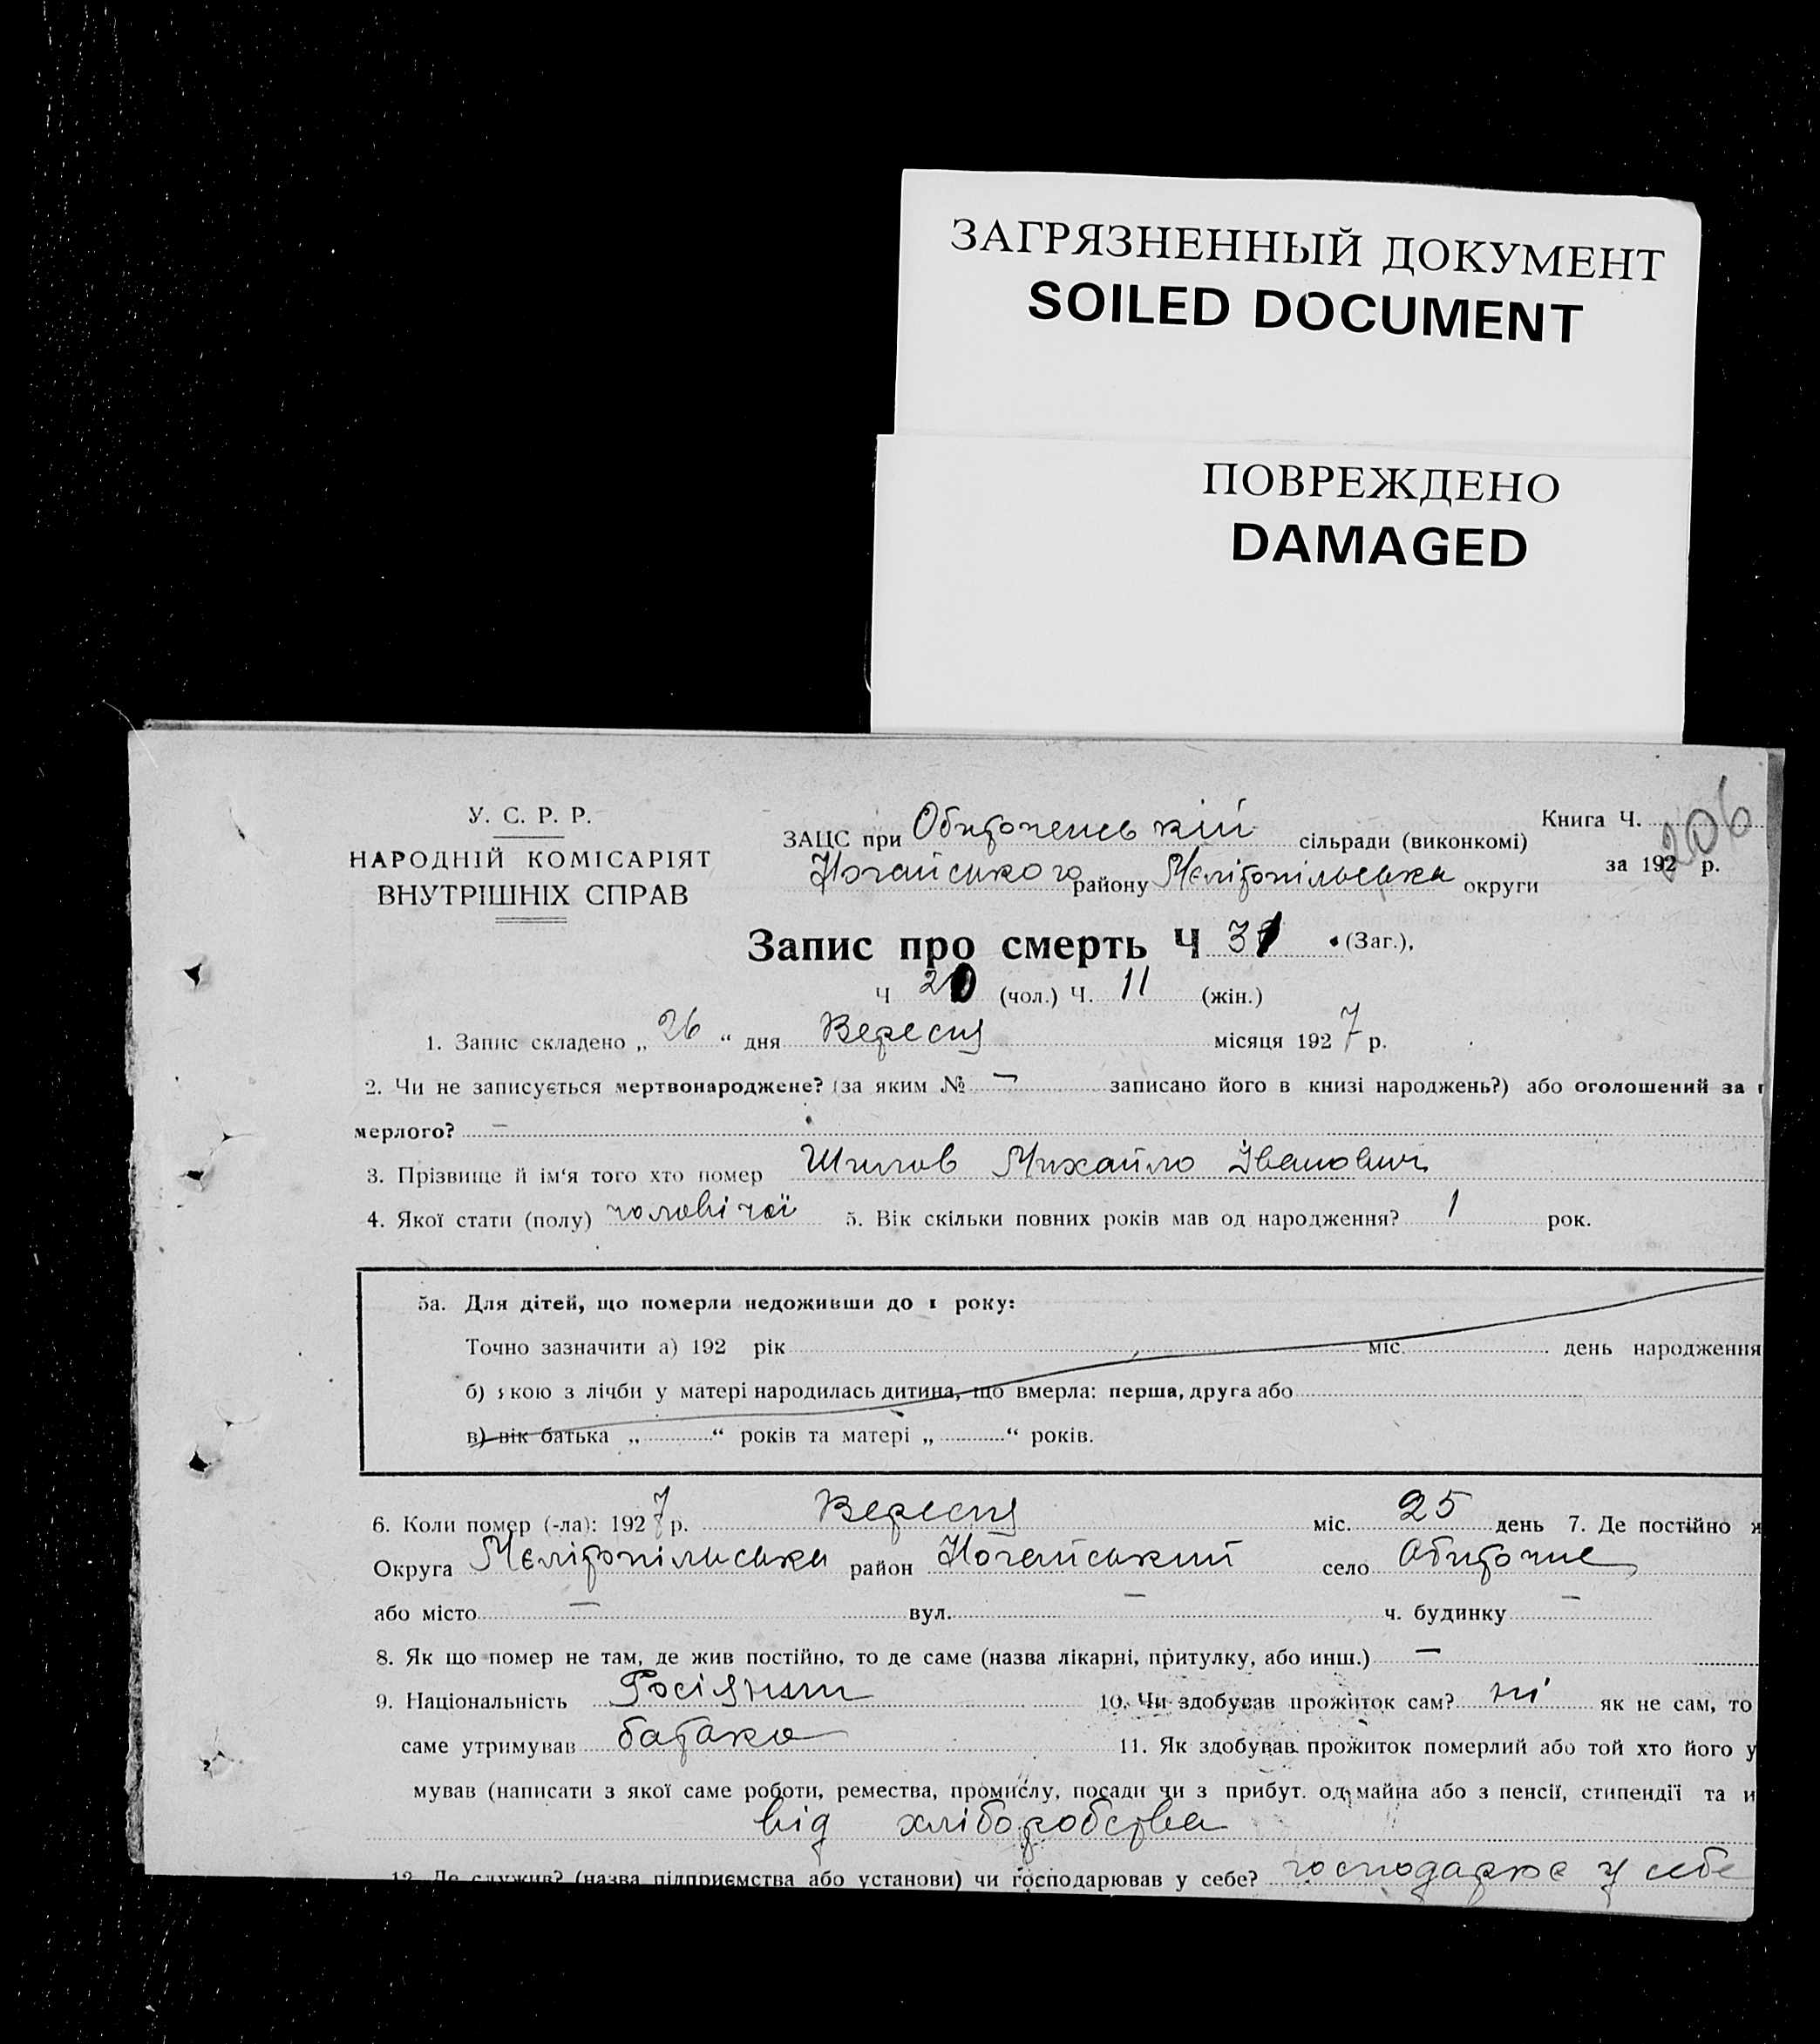 ЗАГРЯЗНЕННЫЙ ДОКУМЕНТ
SOILED DOCUMENT
ПОВРЕЖДЕНО
DAMAGED
206
У. С. Р. Р.
НАРОДНІЙ КОМІСАРІЯТ
ВНУТРІШНІХ СПРАВ
ЗАЦС при Обиточенській сільради (виконкомі)
Ногайського району Мелітопільська округи
Книга Ч.
за 192 р.
Запис про смерть Ч 31 (Заг.),
Ч 20 (чол.) Ч. 11 (жін.)
1. Запис складено „ 26 “ дня Вересня місяця 1927 р.
2. Чи не записується мертвонароджене? (за яким № — записано його в книзі народжень?) або оголошений за
мерлого? —
3. Прізвище й ім‘я того хто помер Шилов Михайло Іванович
4. Якої стати (полу) чоловічої 5. Вік скільки повних років мав од народження? 1 рок.
5а. Для дітей, що померли недоживши до 1 року:
Точно зазначити а) 192 рік міс. день народження
б) якою з лічби у матері народилась дитина, що вмерла: перша, друга або
в) вік батька „ “ років та матері „ “ років.
6. Коли помер (-ла): 1927 р. Вересня міс. 25 день 7. Де постійно ж
Округа Мелітопільська район Ногайський село Обиточне
або місто — вул. — ч. будинку —
8. Як що помер не там, де жив постійно, то де саме (назва лікарні, притулку, або инш.) —
9. Національність Росіянин 10. Чи здобував прожиток сам? ні як не сам, то
саме утримував батько 11. Як здобував прожиток померлий або той хто його у
мував (написати з якої саме роботи, ремества, промислу, посади чи з прибут. од майна або з пенсії, стипендії та и
від хліборобства
12. Де служив? (назва підприємства або установи) чи господарював у себе? господарює у себе